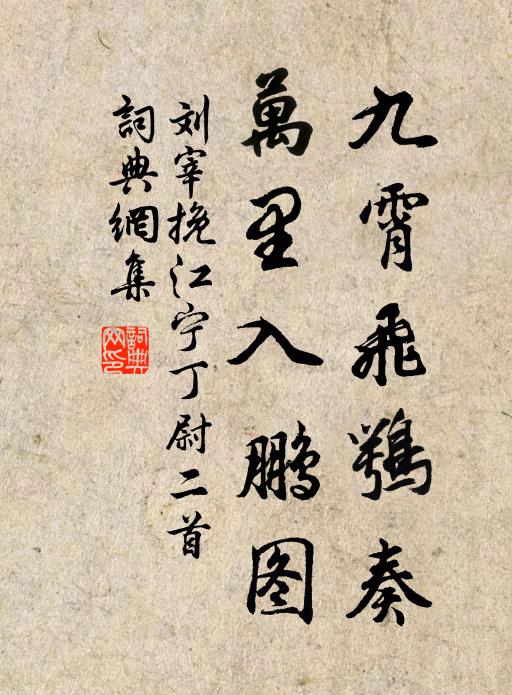 九霄飛鶚奏
萬里入鹏图
刘宰挽江宁丁尉二首
詞典網集
詞典
网印